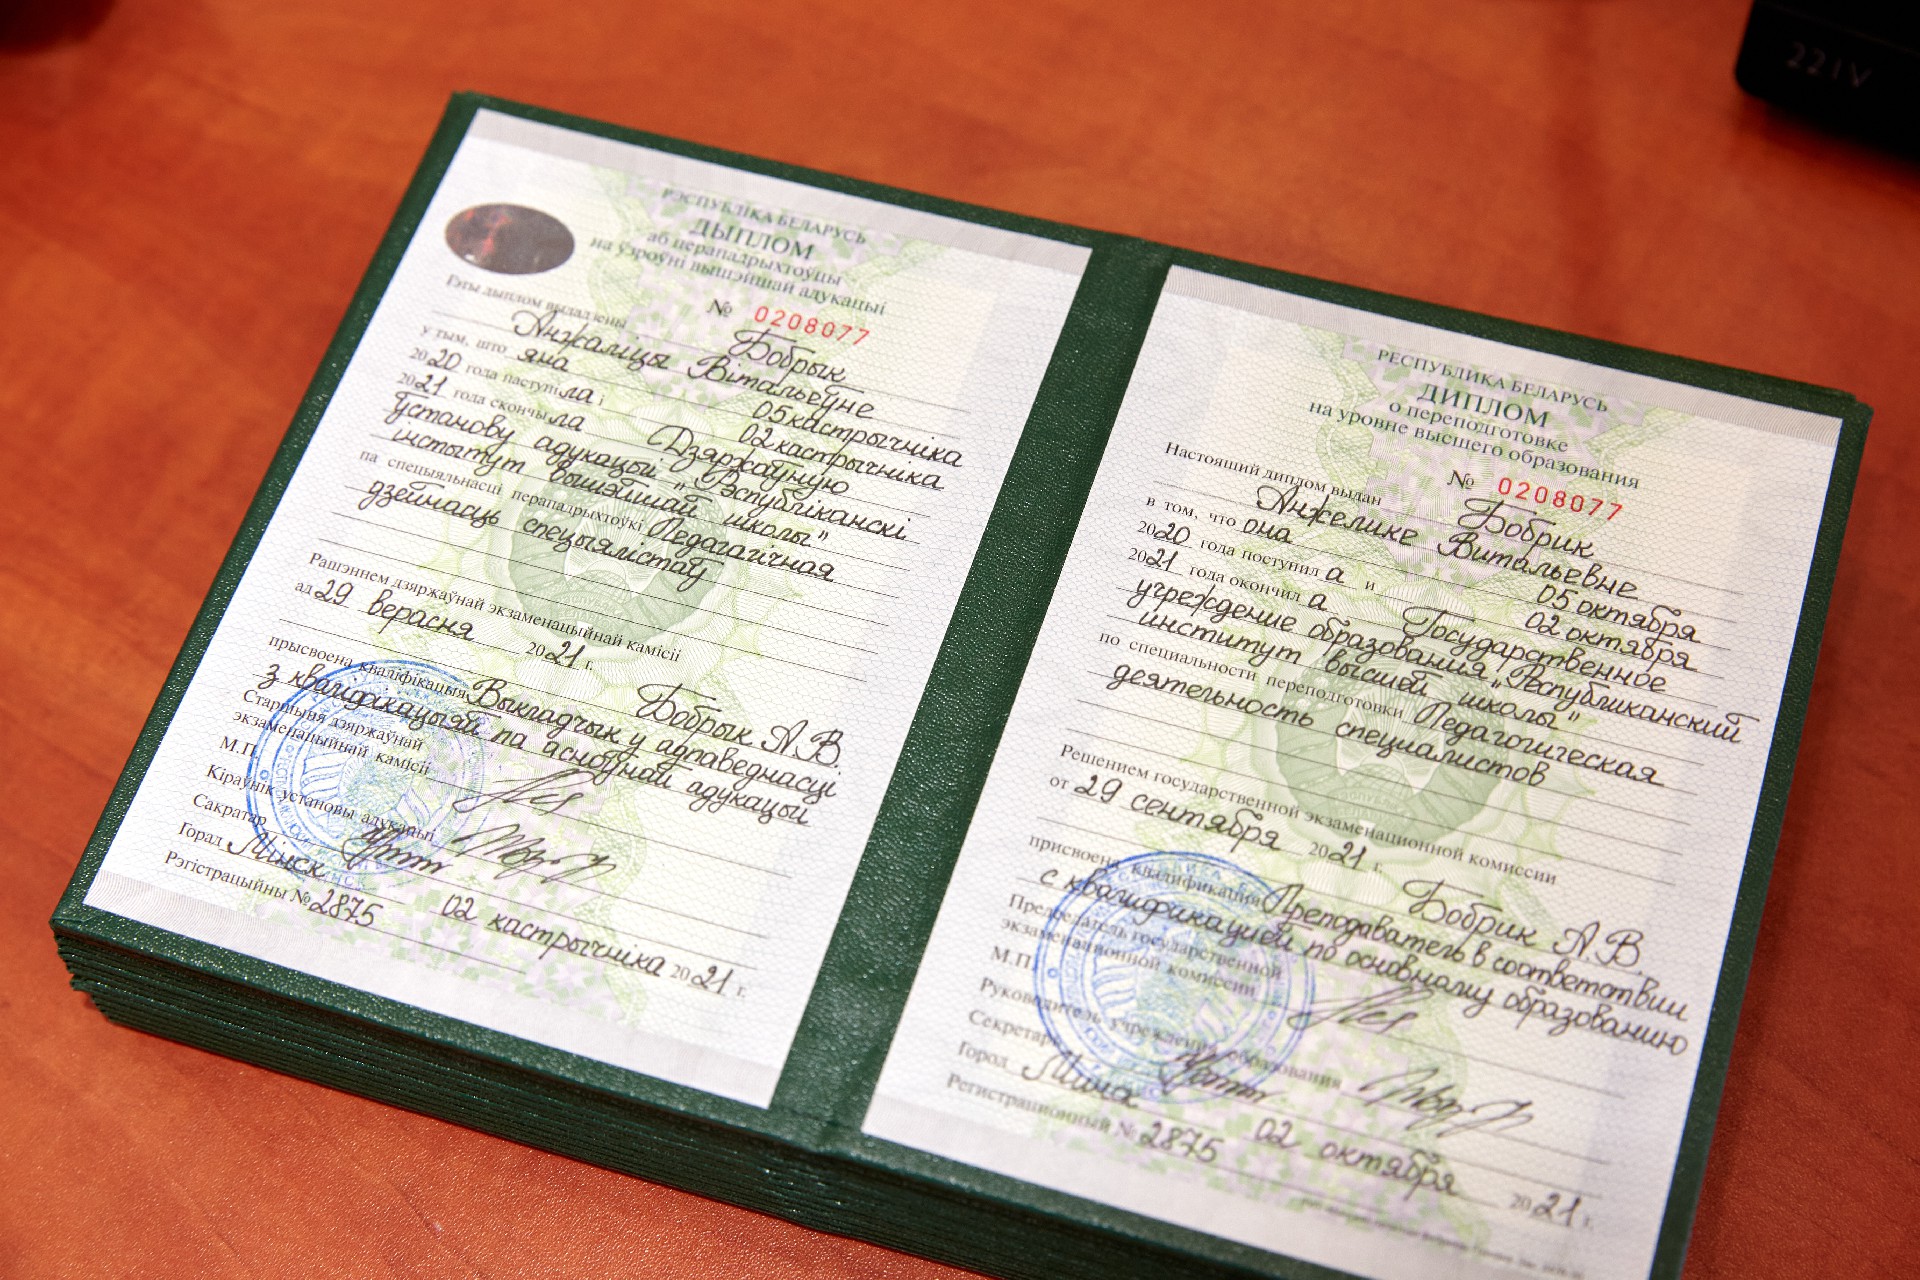 РЭСПУБЛІКА БЕЛАРУСЬ
ДЫПЛОМ
аб перападрыхтоўцы
на ўзроўні вышэйшай адукацыі
№ 0208077
Гэты дыплом выдадзены Бобрык
Анжаліцы Вітальеўне
у тым, што яна 05 кастрычніка
2020 года паступіла і 02 кастрычніка
2021 года скончыла Дзяржаўную
ўстанову адукацыі „Рэспубліканскі
інстытут вышэйшай школы"
па спецыяльнасці перападрыхтоўкі Педагагічная
дзейнасць спецыялістаў
Рашэннем дзяржаўнай экзаменацыйнай камісіі
ад 29 верасня 2021 г.
Бобрык А.В.
прысвоена кваліфікацыя Выкладчык у адпаведнасці
з кваліфікацыяй па асноўнай адукацыі
Старшыня дзяржаўнай
экзаменацыйнай камісіі
М.П.
Кіраўнік установы адукацыі
Сакратар
Горад Мінск 02 кастрычніка 2021 г.
Рэгістрацыйны № 2875
РЕСПУБЛИКА БЕЛАРУСЬ
ДИПЛОМ
о переподготовке
на уровне высшего образования
№ 0208077
Настоящий диплом выдан Бобрик
Анжелике Витальевне
в том, что она 05 октября
2020 года поступила и 02 октября
2021 года окончила Государственное
учреждение образования „Республиканский
институт высшей школы"
по специальности переподготовки Педагогическая
деятельность специалистов
Решением государственной экзаменационной комиссии
от 29 сентября 2021 г.
Бобрик А.В.
присвоена квалификация Преподаватель в соответствии
с квалификацией по основному образованию
Председатель государственной
экзаменационной комиссии
М.П.
Руководитель учреждения образования
Секретарь
Город Минск 02 октября 2021 г.
Регистрационный № 2875
221V